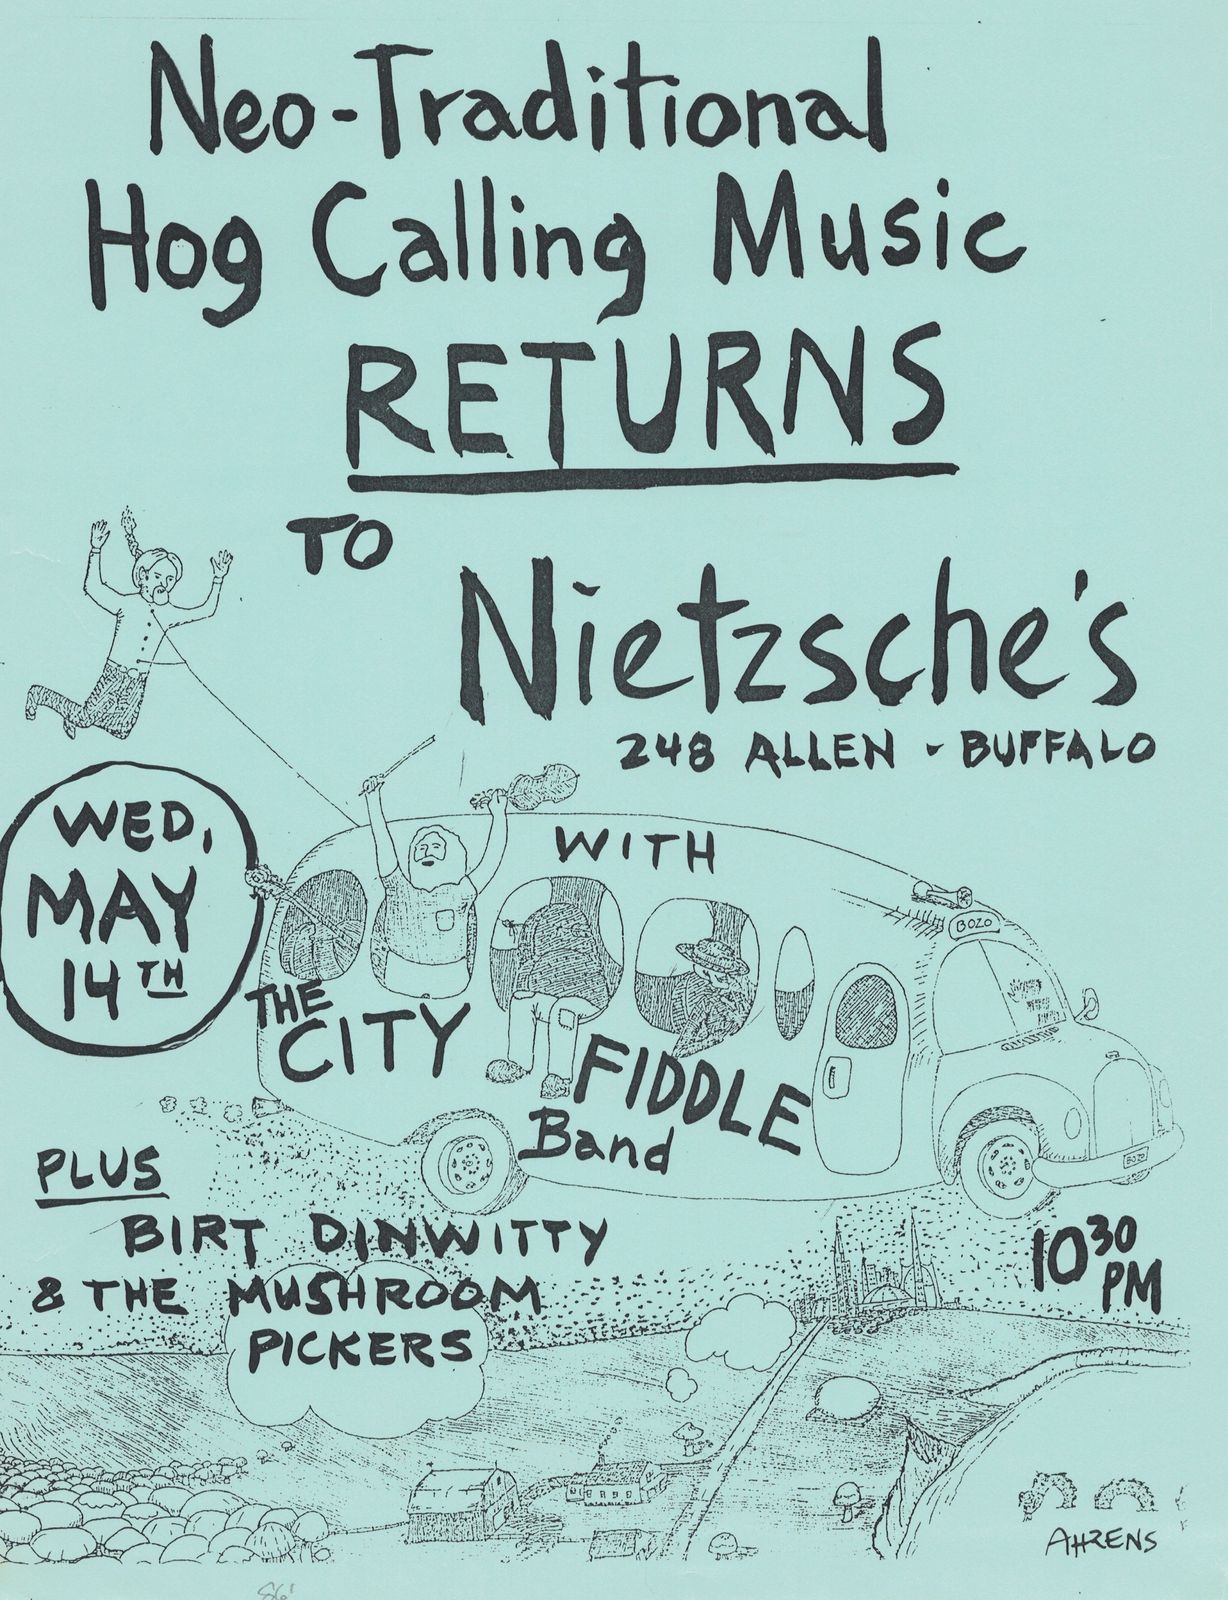 Neo-Traditional
Hog Calling Music
RETURNS
TO
Nietzsche's
248 ALLEN - BUFFALO
WED,
MAY
14TH
WITH
BOZO
THE
CITY
FIDDLE
Band
BOZO
PLUS
BIRT DINWITTY
& THE MUSHROOM
PICKERS
10 30
PM
AHRENS
86'